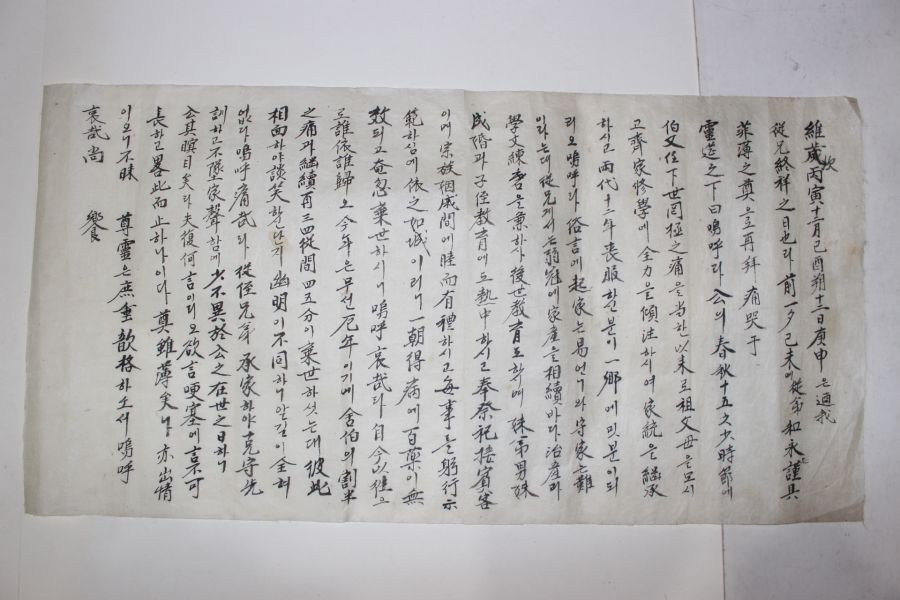 維歲次丙寅十二月己酉朔十二日庚申은適我
從兄終祥之日也라前一夕己未에從弟和永謹具
菲薄之奠을再拜痛哭于
靈筵之下曰嗚呼라公의春秋十五之少時節에
伯父任下世罔極之痛을当한以來로祖父母을모시
고齊家修學에全力을傾注하시여家統을繼承
하시고兩代十二年喪服한분이一鄕에밋분이되
리오嗚呼라俗言에起家는易언니와守家는難
이라는대從兄게서는弱冠에家產을相續바다治產과
學文練磨을兼하사後世教育도하며妹弟男妹
成婚과子侄教育에도熱中하시고奉祭祀接賓客
이며宗族姻戚間에睦而有禮하시고每事를躬行示
範하심에依之如城이러니一朝得病에百藥이無
效되고奄忽棄世하시니嗚呼哀哉라自今以往으
로誰依誰歸오今年은무선厄年이기에舍伯의割半
之痛과繼續再三四從間四五分이棄世하섯는대彼此
相面하야談笑한난지幽明이不同하니알길이全혀
없다嗚呼痛哉라從侄兄弟承家하야克守先
訓하고不墜家聲함에少不異於公之在世之日하니
公其瞑目矣라夫復何言이리오欲言哽塞에言不可
長하고畧此而止하나이다奠雖薄矣나亦出情
이오니不昧 尊靈은庶垂歆格하소서嗚呼
哀哉尚 饗